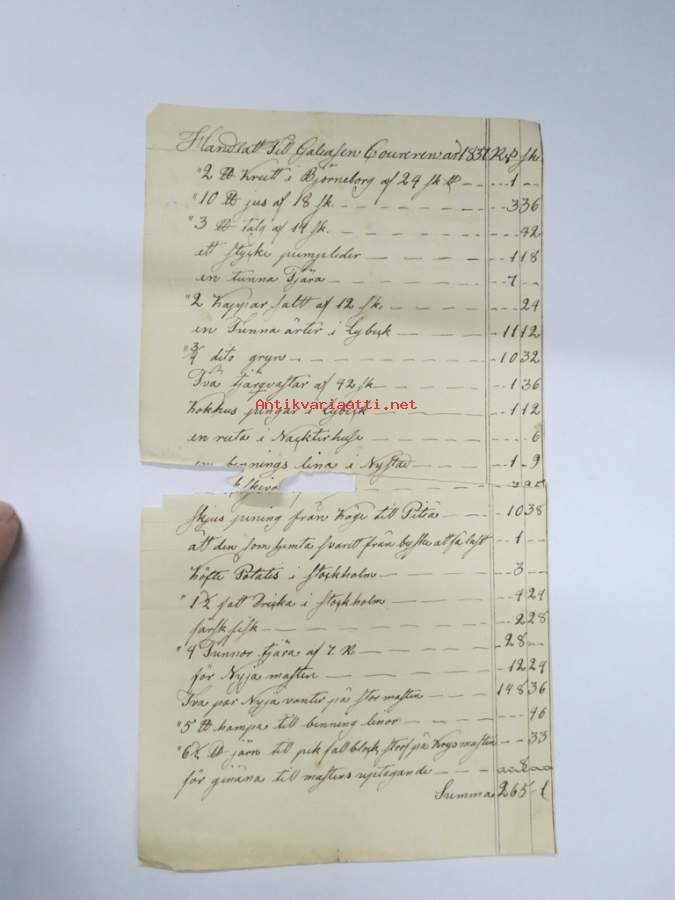 Handlatt Till Galeasen Coureren år 1837 Rd sk.
"2 ℔ Krutt i Björneborg af 24 sk ℔ 1
"10 ℔ jus af 18 sk. 3 36
"3 ℔ talg af 14 sk. 42
ett stycke pumpleder 1 18
en tunna Tjära 7
"2 Kappar saltt af 12 sk. 24
en Tunna ärter i Lybeck 11 12
"3/4 dito gryn 10 32
Två tjärqvastar af 42 sk 1 36
Antikvariaatti.net
Kokhus pungar i Lybeck 1 12
en ruta i Nackterhuse 6
en bennings lina i Nystad 1 9
skjus pening från Köge till Piteå 10 38
att den som hemta svarit från byske att få last 1
Köfte Potatis i Stockholm 3
"1½ fatt Dricka i Stockholm 4 24
färsk fisk 2 28
"4 Tunnor tjära af 7 R 28
för Nyja masten 12 24
Två par Nyja vanter på stor masten 148 36
"5 ℔ hampa till benning linor 46
"6½ ℔ järn till pik fall block stor på Krys masten 33
för till mastens uptagande 8
Summa 265 1